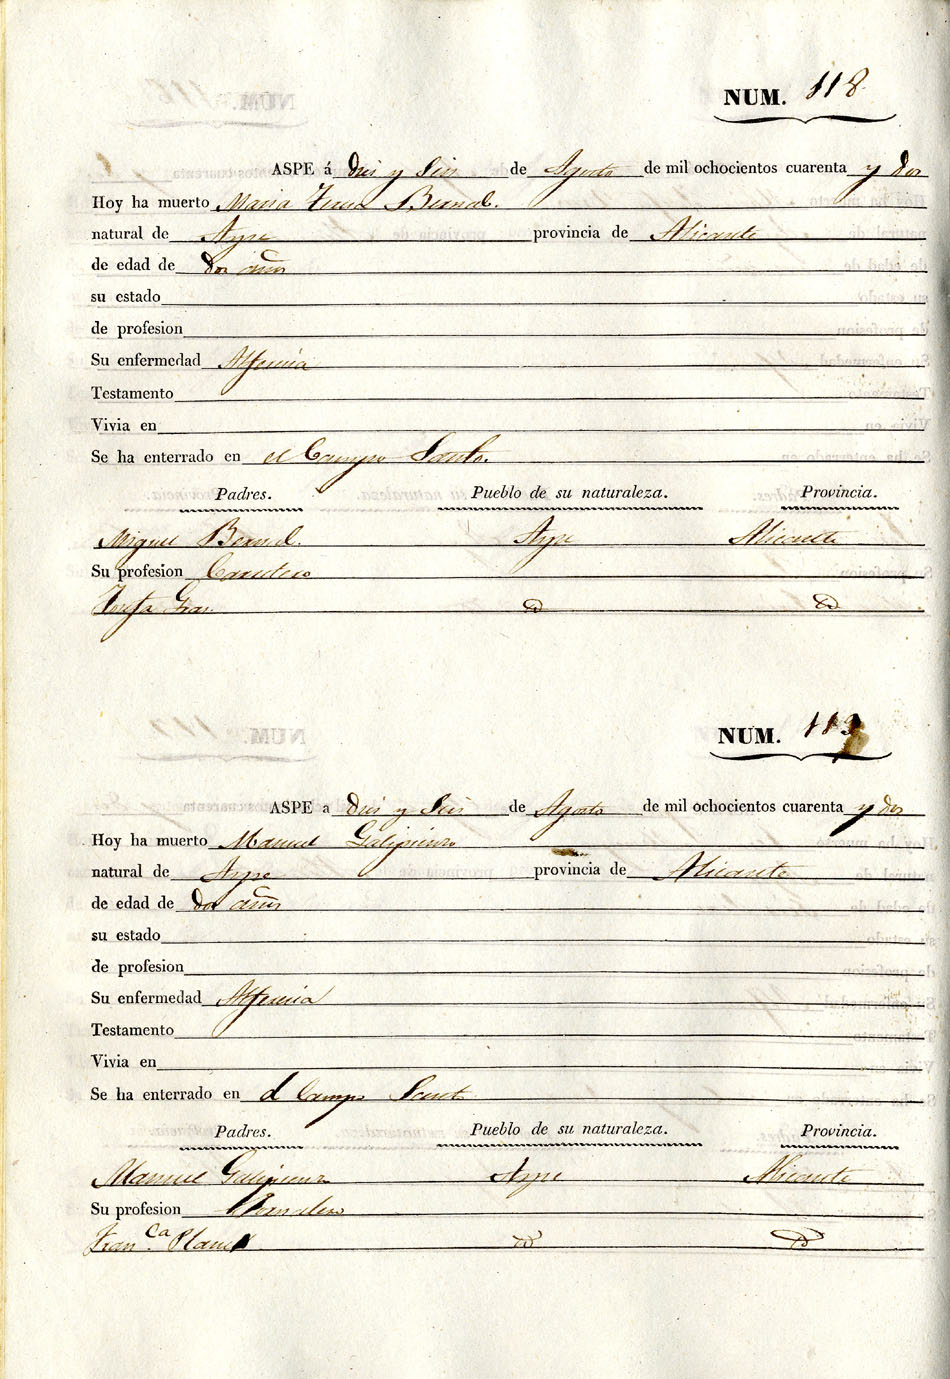 NUM. 118
ASPE á diez y Seis de Agosto de mil ochocientos cuarenta y dos
Hoy ha muerto Maria Teresa Bernal.
natural de Aspe provincia de Alicante
de edad de dos años
su estado
de profesion
Su enfermedad Alferecia
Testamento
Vivia en
Se ha enterrado en el Campo Santo.
Padres. Pueblo de su naturaleza. Provincia.
Miguel Bernal. Aspe Alicante
Su profesion
Gras. id id
NUM. 119
ASPE a diez y Seis de Agosto de mil ochocientos cuarenta y dos
Hoy ha muerto Manuel Galipienzo
natural de Aspe provincia de Alicante
de edad de dos años
su estado
de profesion
Su enfermedad Alferecia
Testamento
Vivia en
Se ha enterrado en el Campo Santo
Padres. Pueblo de su naturaleza. Provincia.
Manuel Galipienzo Aspe Alicante
Su profesion
Fran.ca id id